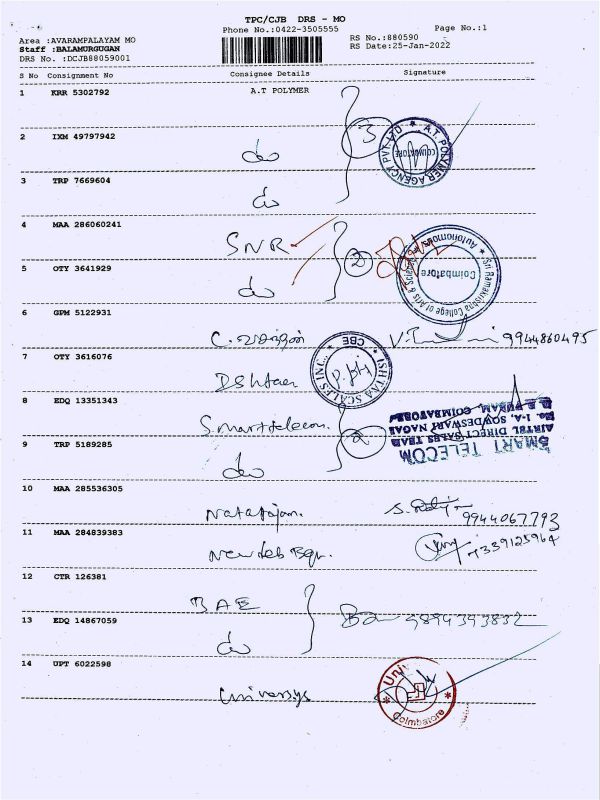 TPC/CJB DRS - MO
Phone No.:0422-3505555
Page No.:1
Area :AVARAMPALAYAM MO
RS No.:880590
Staff :BALAMURGUGAN
RS Date:25-Jan-2022
DRS No. :DCJB88059001
S No Consignment No Consignee Details Signature
1 KRR 5302792 A.T POLYMER
3
A.T. POLYMER AGENCY PVT. LTD
COIMBATORE
2 IXM 49797942
do
3 TRP 7669604
do
4 MAA 286060241
SNR
2
Sri Ramakrishna College of Arts & Science
Autonomous
Coimbatore
5 OTY 3641929
do
6 GPM 5122931
9944860495
7 OTY 3616076
ISHTAA SCALES INC.
CBE
8 EDQ 13351343
Smart telecom.
2
SMART TELECOM
AIRTEL DIRECT SALES TEAM
No. 1-A, SOWDESWARI NAGAR
COIMBATORE
9 TRP 5189285
do
10 MAA 285536305
Natarajan.
9944067793
11 MAA 284839383
7339125964
12 CTR 126381
BAE
13 EDQ 14867059
do
9894393832
14 UPT 6022598
Universys
Coimbatore